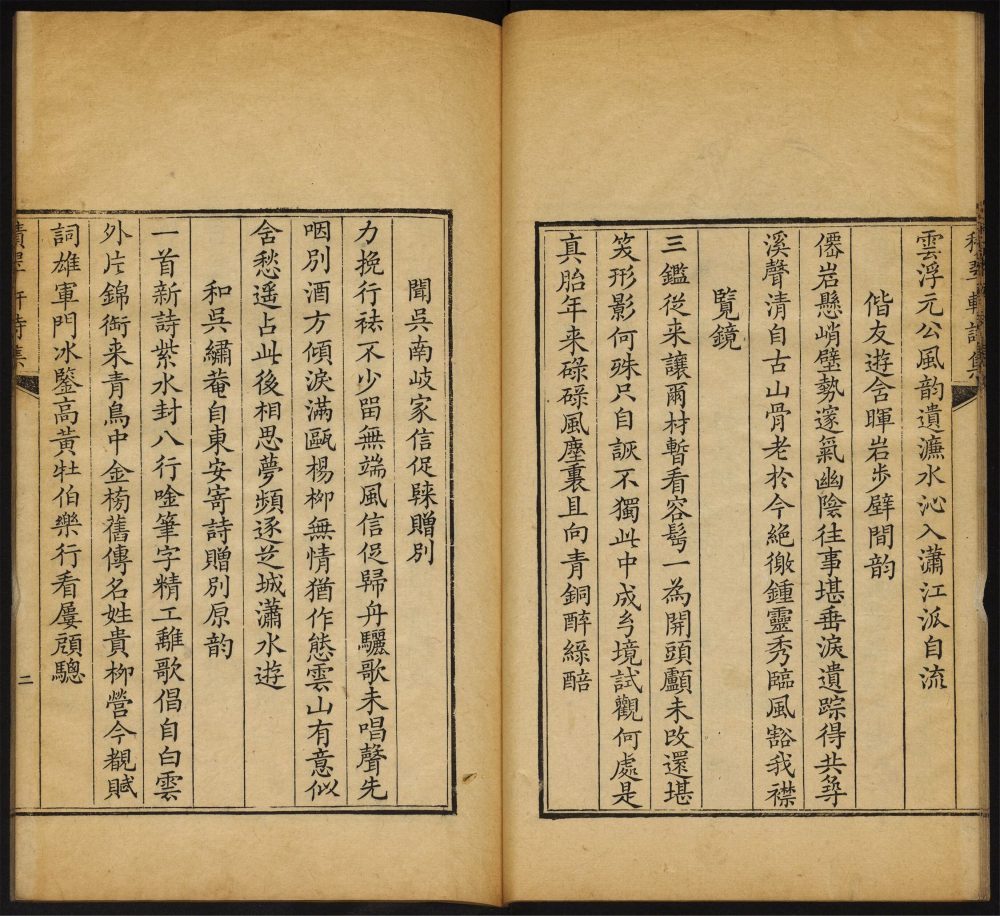 雲浮元公風韵遺濂水沁入瀟江派自流
偕友遊含暉岩步壁間韵
僊岩懸峭壁勢邃氣幽陰往事堪垂淚遺踪得共尋
溪聲清自古山骨老於今絕徼鍾靈秀臨風豁我襟
覧鏡
三鑑從来讓爾材暫看容髩一為開頭顱未改還堪
笑形影何殊只自詼不獨此中成幻境試觀何處是
真胎年来碌碌風塵裏且向青銅醉綠醅
聞吳南岐家信促歸贈別
力挽行袪不少畱無端風信促歸舟驪歌未唱聲先
咽別酒方傾淚滿甌楊柳無情猶作態雲山有意似
含愁遥占此後相思夢頻逐芝城瀟水遊
和吳繡菴自東安寄詩贈別原韵
一首新詩紫水封八行唫筆字精工離歌倡自白雲
外片錦銜来青鳥中金榜舊傳名姓貴柳營今覩賦
詞雄軍門冰鑒高黃牡伯樂行看屢顧驄
軒詩集
二